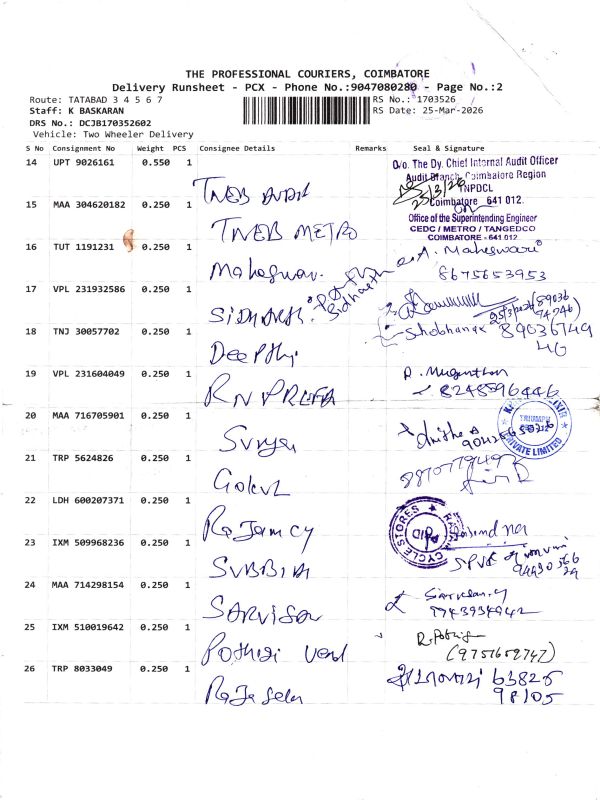 THE PROFESSIONAL COURIERS, COIMBATORE
Delivery Runsheet - PCX - Phone No.:9047080280 - Page No.:2
Route: TATABAD 3 4 5 6 7
Staff: K BASKARAN
DRS No.: DCJB170352602
Vehicle: Two Wheeler Delivery
RS No.: 1703526
RS Date: 25-Mar-2026
S No Consignment No Weight PCS Consignee Details Remarks Seal & Signature
14 UPT 9026161 0.550 1 TNEB Audit
O/o. The Dy. Chief Internal Audit Officer
Audit Branch, Coimbatore Region
TNPDCL
Coimbatore 641 012.
25/3/26
15 MAA 304620182 0.250 1 TNEB METRO
Office of the Superintending Engineer
CEDC / METRO / TANGEDCO
COIMBATORE - 641 012
16 TUT 1191231 0.250 1 Maheswari A. Maheswari
8675653953
17 VPL 231932586 0.250 1 Sidharth Sidharth
18 TNJ 30057702 0.250 1 Deepthi Shobhana
19 VPL 231604049 0.250 1 R. Muganthan
8248596446
20 MAA 716705901 0.250 1 Surya
TRIUMPH
PRIVATE LIMITED
21 TRP 5624826 0.250 1 Gokul
22 LDH 600207371 0.250 1 Rajam cy
CYCLE STORES
23 IXM 509968236 0.250 1 SUBBIA
24 MAA 714298154 0.250 1
9943934942
25 IXM 510019642 0.250 1 Pothigi
(9751659747)
26 TRP 8033049 0.250 1 Rajasekar 63825
98105